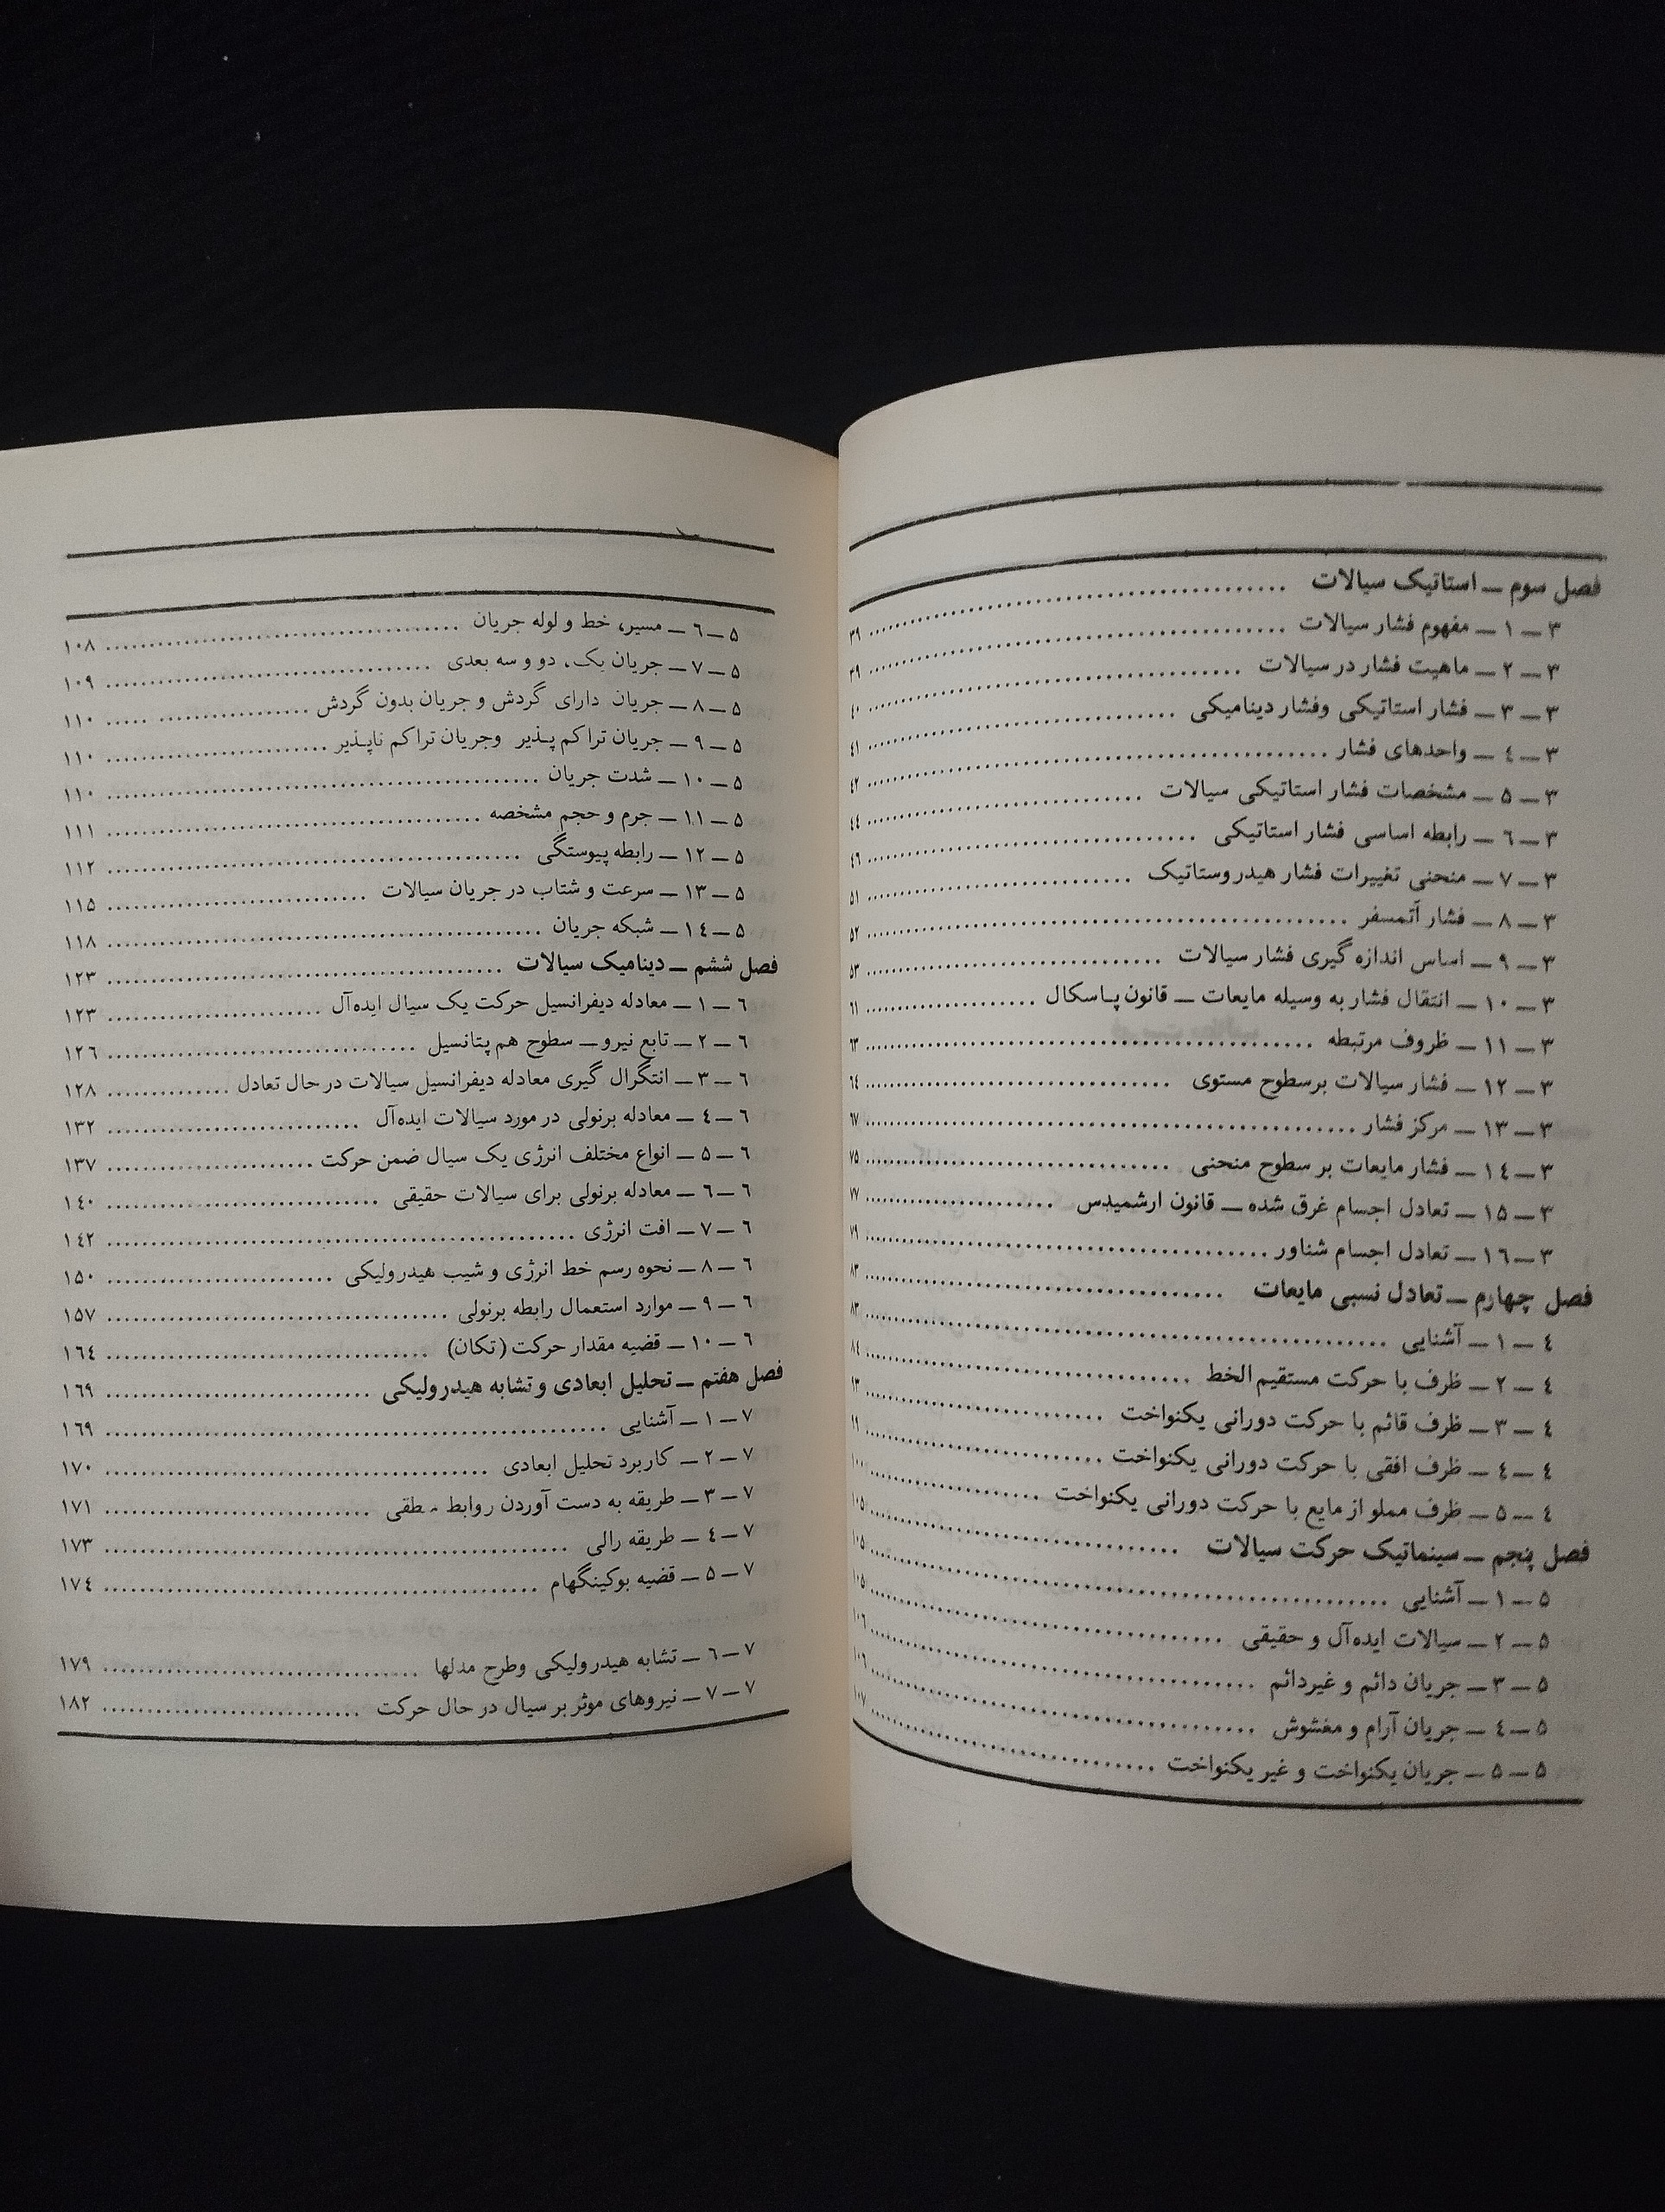 فصل سوم ــ استاتیک سیالات .......... ۳۹
۳ ــ ۱ ــ مفهوم فشار سیالات .......... ۳۹
۳ ــ ۲ ــ ماهیت فشار در سیالات .......... ٤۰
۳ ــ ۳ ــ فشار استاتیکی وفشار دینامیکی .......... ٤۱
۳ ــ ٤ ــ واحدهای فشار .......... ٤۲
۳ ــ ۵ ــ مشخصات فشار استاتیکی سیالات .......... ٤٤
۳ ــ ٦ ــ رابطه اساسی فشار استاتیکی .......... ٤٦
۳ ــ ۷ ــ منحنی تغییرات فشار هیدروستاتیک .......... ۵۱
۳ ــ ۸ ــ فشار آتمسفر .......... ۵۲
۳ ــ ۹ ــ اساس اندازه گیری فشار سیالات .......... ۵۳
۳ ــ ۱۰ ــ انتقال فشار به وسیله مایعات ــ قانون پاسکال .......... ٦۱
۳ ــ ۱۱ ــ ظروف مرتبطه .......... ٦۳
۳ ــ ۱۲ ــ فشار سیالات برسطوح مستوی .......... ٦٤
۳ ــ ۱۳ ــ مرکز فشار .......... ٦۷
۳ ــ ۱٤ ــ فشار مایعات بر سطوح منحنی .......... ۷۵
۳ ــ ۱۵ ــ تعادل اجسام غرق شده ــ قانون ارشمیدس .......... ۷۷
۳ ــ ۱٦ ــ تعادل اجسام شناور .......... ۷۹
فصل چهارم ــ تعادل نسبی مایعات .......... ۸۳
٤ ــ ۱ ــ آشنایی .......... ۸۳
٤ ــ ۲ ــ ظرف با حرکت مستقیم الخط .......... ۸٤
٤ ــ ۳ ــ ظرف قائم با حرکت دورانی یکنواخت .......... ۹۳
٤ ــ ٤ ــ ظرف افقی با حرکت دورانی یکنواخت ..........
٤ ــ ۵ ــ ظرف مملو از مایع با حرکت دورانی یکنواخت .......... ۱۰۰
فصل پنجم ــ سینماتیک حرکت سیالات .......... ۱۰۵
۵ ــ ۱ ــ آشنایی .......... ۱۰۵
۵ ــ ۲ ــ سیالات ایده‌آل و حقیقی .......... ۱۰۵
۵ ــ ۳ ــ جریان دائم و غیردائم .......... ۱۰٦
۵ ــ ٤ ــ جریان آرام و مغشوش .......... ۱۰٦
۵ ــ ۵ ــ جریان یکنواخت و غیر یکنواخت .......... ۱۰۷
۵ ــ ٦ ــ مسیر، خط و لوله جریان .......... ۱۰۸
۵ ــ ۷ ــ جریان یک، دو و سه بعدی .......... ۱۰۹
۵ ــ ۸ ــ جریان دارای گردش و جریان بدون گردش .......... ۱۱۰
۵ ــ ۹ ــ جریان تراکم پـذیر وجریان تراکم ناپـذیر .......... ۱۱۰
۵ ــ ۱۰ ــ شدت جریان .......... ۱۱۰
۵ ــ ۱۱ ــ جرم و حجم مشخصه .......... ۱۱۱
۵ ــ ۱۲ ــ رابطه پیوستگی .......... ۱۱۲
۵ ــ ۱۳ ــ سرعت و شتاب در جریان سیالات .......... ۱۱۵
۵ ــ ۱٤ ــ شبکه جریان .......... ۱۱۸
فصل ششم ــ دینامیک سیالات .......... ۱۲۳
٦ ــ ۱ ــ معادله دیفرانسیل حرکت یک سیال ایده‌آل .......... ۱۲۳
٦ ــ ۲ ــ تابع نیرو ــ سطوح هم پتانسیل .......... ۱۲٦
٦ ــ ۳ ــ انتگرال گیری معادله دیفرانسیل سیالات در حال تعادل .......... ۱۲۸
٦ ــ ٤ ــ معادله برنولی در مورد سیالات ایده‌آل .......... ۱۳۲
٦ ــ ۵ ــ انواع مختلف انرژی یک سیال ضمن حرکت .......... ۱۳۷
٦ ــ ٦ ــ معادله برنولی برای سیالات حقیقی .......... ۱٤۰
٦ ــ ۷ ــ افت انرژی .......... ۱٤۲
٦ ــ ۸ ــ نحوه رسم خط انرژی و شیب هیدرولیکی .......... ۱۵۰
٦ ــ ۹ ــ موارد استعمال رابطه برنولی .......... ۱۵۷
٦ ــ ۱۰ ــ قضیه مقدار حرکت (تکان) .......... ۱٦٤
فصل هفتم ــ تحلیل ابعادی و تشابه هیدرولیکی .......... ۱٦۹
۷ ــ ۱ ــ آشنایی .......... ۱٦۹
۷ ــ ۲ ــ کاربرد تحلیل ابعادی .......... ۱۷۰
۷ ــ ۳ ــ طریقه به دست آوردن روابط .......... ۱۷۱
۷ ــ ٤ ــ طریقه رالی .......... ۱۷۳
۷ ــ ۵ ــ قضیه بوکینگهام .......... ۱۷٤
۷ ــ ٦ ــ تشابه هیدرولیکی وطرح مدلها .......... ۱۷۹
۷ ــ ۷ ــ نیروهای موثر بر سیال در حال حرکت .......... ۱۸۲